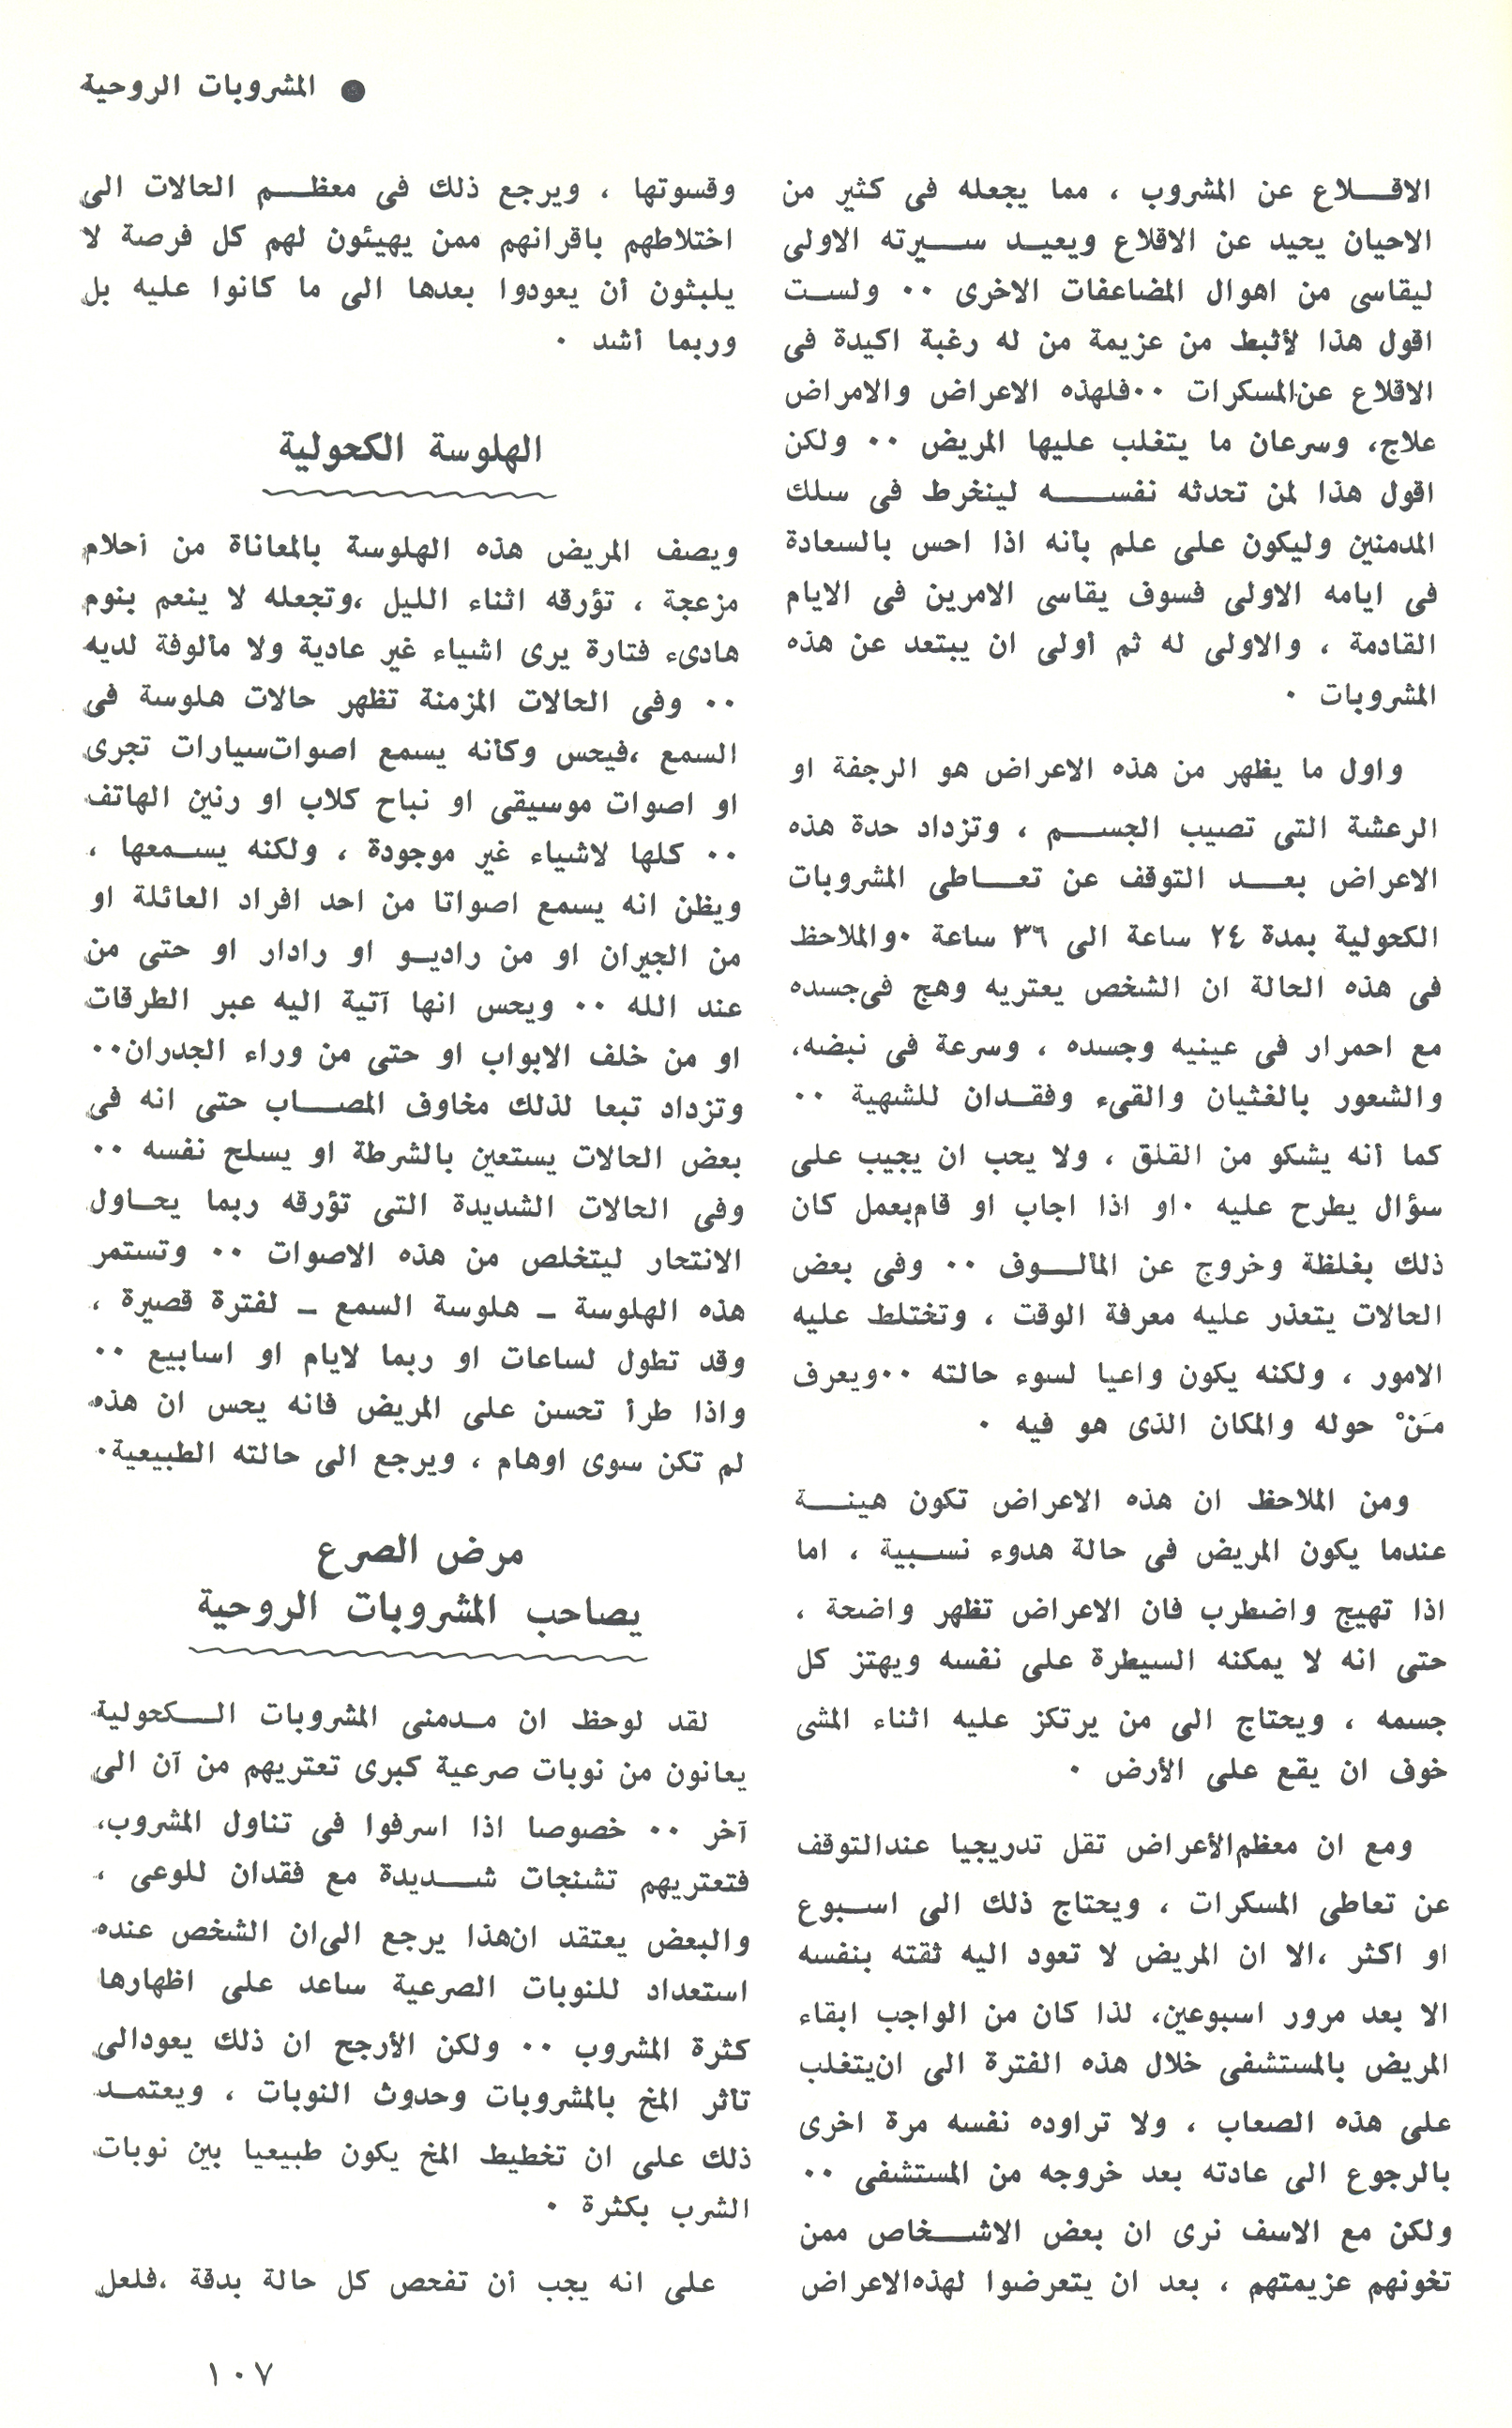 ● المشروبات الروحية
الاقـــلاع عن المشروب ، مما يجعله فى كثير من
الاحيان يحيد عن الاقلاع ويعيـد ســيرته الاولى
ليقاسى من اهوال المضاعفات الاخرى ٠٠ ولسـت
اقول هذا لأثبط من عزيمة من له رغبة اكيدة فى
الاقلاع عن المسكرات ٠٠فلهذه الاعراض والامراض
علاج، وسرعان ما يتغلب عليها المريض ٠٠ ولكن
اقول هذا لمن تحدثه نفســـه لينخرط فى سلك
المدمنين وليكون على علم بأنه اذا احس بالسعادة
فى ايامه الاولى فسوف يقاسى الامرين فى الايام
القادمة ، والاولى له ثم أولى ان يبتعد عن هذه
المشروبات ٠
واول ما يظهر من هذه الاعراض هو الرجفة او
الرعشة التى تصيب الجســم ، وتزداد حدة هذه
الاعراض بعــد التوقف عن تعــاطى المشروبات
الكحولية بمدة ٢٤ ساعة الى ٣٦ ساعة ٠والملاحظ
فى هذه الحالة ان الشخص يعتريه وهج فى جسده
مع احمرار فى عينيه وجسده ، وسرعة فى نبضه،
والشعور بالغثيان والقىء وفقـدان للشهية ٠٠
كما أنه يشكو من القلق ، ولا يحب ان يجيب على
سؤال يطرح عليه ٠او اذا اجاب او قام بعمل كان
ذلك بغلظة وخروج عن المألــوف ٠٠ وفى بعض
الحالات يتعذر عليه معرفة الوقت ، وتختلط عليه
الامور ، ولكنه يكون واعيا لسوء حالته ٠٠ويعرف
مَنْ حوله والمكان الذى هو فيه ٠
ومن الملاحظ ان هذه الاعراض تكون هينــة
عندما يكون المريض فى حالة هدوء نسـبية ، اما
اذا تهيج واضطرب فان الاعراض تظهر واضحة ،
حتى انه لا يمكنه السيطرة على نفسه ويهتز كل
جسمه ، ويحتاج الى من يرتكز عليه اثناء المشى
خوف ان يقع على الأرض ٠
ومع ان معظم الأعراض تقل تدريجيا عند التوقف
عن تعاطى المسكرات ، ويحتاج ذلك الى اسـبوع
او اكثر ،الا ان المريض لا تعود اليه ثقته بنفسه
الا بعد مرور اسبوعين، لذا كان من الواجب ابقاء
المريض بالمستشفى خلال هذه الفترة الى ان يتغلب
على هذه الصعاب ، ولا تراوده نفسه مرة اخرى
بالرجوع الى عادته بعد خروجه من المستشفى ٠٠
ولكن مع الاسف نرى ان بعض الاشــخاص ممن
تخونهم عزيمتهم ، بعد ان يتعرضوا لهذه الاعراض
وقسوتها ، ويرجع ذلك فى معظــم الحالات الى
اختلاطهم باقرانهم ممن يهيئون لهم كل فرصة لا
يلبثون أن يعودوا بعدها الى ما كانوا عليه بل
وربما أشد ٠
الهلوسة الكحولية
ويصف المريض هذه الهلوسة بالمعاناة من أحلام
مزعجة ، تؤرقه اثناء الليل ،وتجعله لا ينعم بنوم
هادىء فتارة يرى اشياء غير عادية ولا مألوفة لديه
٠٠ وفى الحالات المزمنة تظهر حالات هلوسة فى
السمع ،فيحس وكأنه يسمع اصوات سيارات تجرى
او اصوات موسيقى او نباح كلاب او رنين الهاتف
٠٠ كلها لاشياء غير موجودة ، ولكنه يسـمعها ،
ويظن انه يسمع اصواتا من احد افراد العائلة او
من الجيران او من راديـو او رادار او حتى من
عند الله ٠٠ ويحس انها آتية اليه عبر الطرقات
او من خلف الابواب او حتى من وراء الجدران٠٠
وتزداد تبعا لذلك مخاوف المصــاب حتى انه فى
بعض الحالات يستعين بالشرطة او يسلح نفسه ٠٠
وفى الحالات الشديدة التى تؤرقه ربما يحـاول
الانتحار ليتخلص من هذه الاصوات ٠٠ وتستمر
هذه الهلوسة ــ هلوسة السمع ــ لفترة قصيرة ،
وقد تطول لساعات او ربما لايام او اسابيع ٠٠
واذا طرأ تحسن على المريض فانه يحس ان هذه
لم تكن سوى اوهام ، ويرجع الى حالته الطبيعية٠
مرض الصرع
يصاحب المشروبات الروحية
لقد لوحظ ان مـدمنى المشروبات الــكحولية
يعانون من نوبات صرعية كبرى تعتريهم من آن الى
آخر ٠٠ خصوصا اذا اسرفوا فى تناول المشروب،
فتعتريهم تشنجات شــديدة مع فقدان للوعى ،
والبعض يعتقد ان هذا يرجع الى ان الشخص عنده
استعداد للنوبات الصرعية ساعد على اظهارها
كثرة المشروب ٠٠ ولكن الأرجح ان ذلك يعود الى
تأثر المخ بالمشروبات وحدوث النوبات ، ويعتمـد
ذلك على ان تخطيط المخ يكون طبيعيا بين نوبات
الشرب بكثرة ٠
على انه يجب أن تفحص كل حالة بدقة ،فلعل
١٠٧